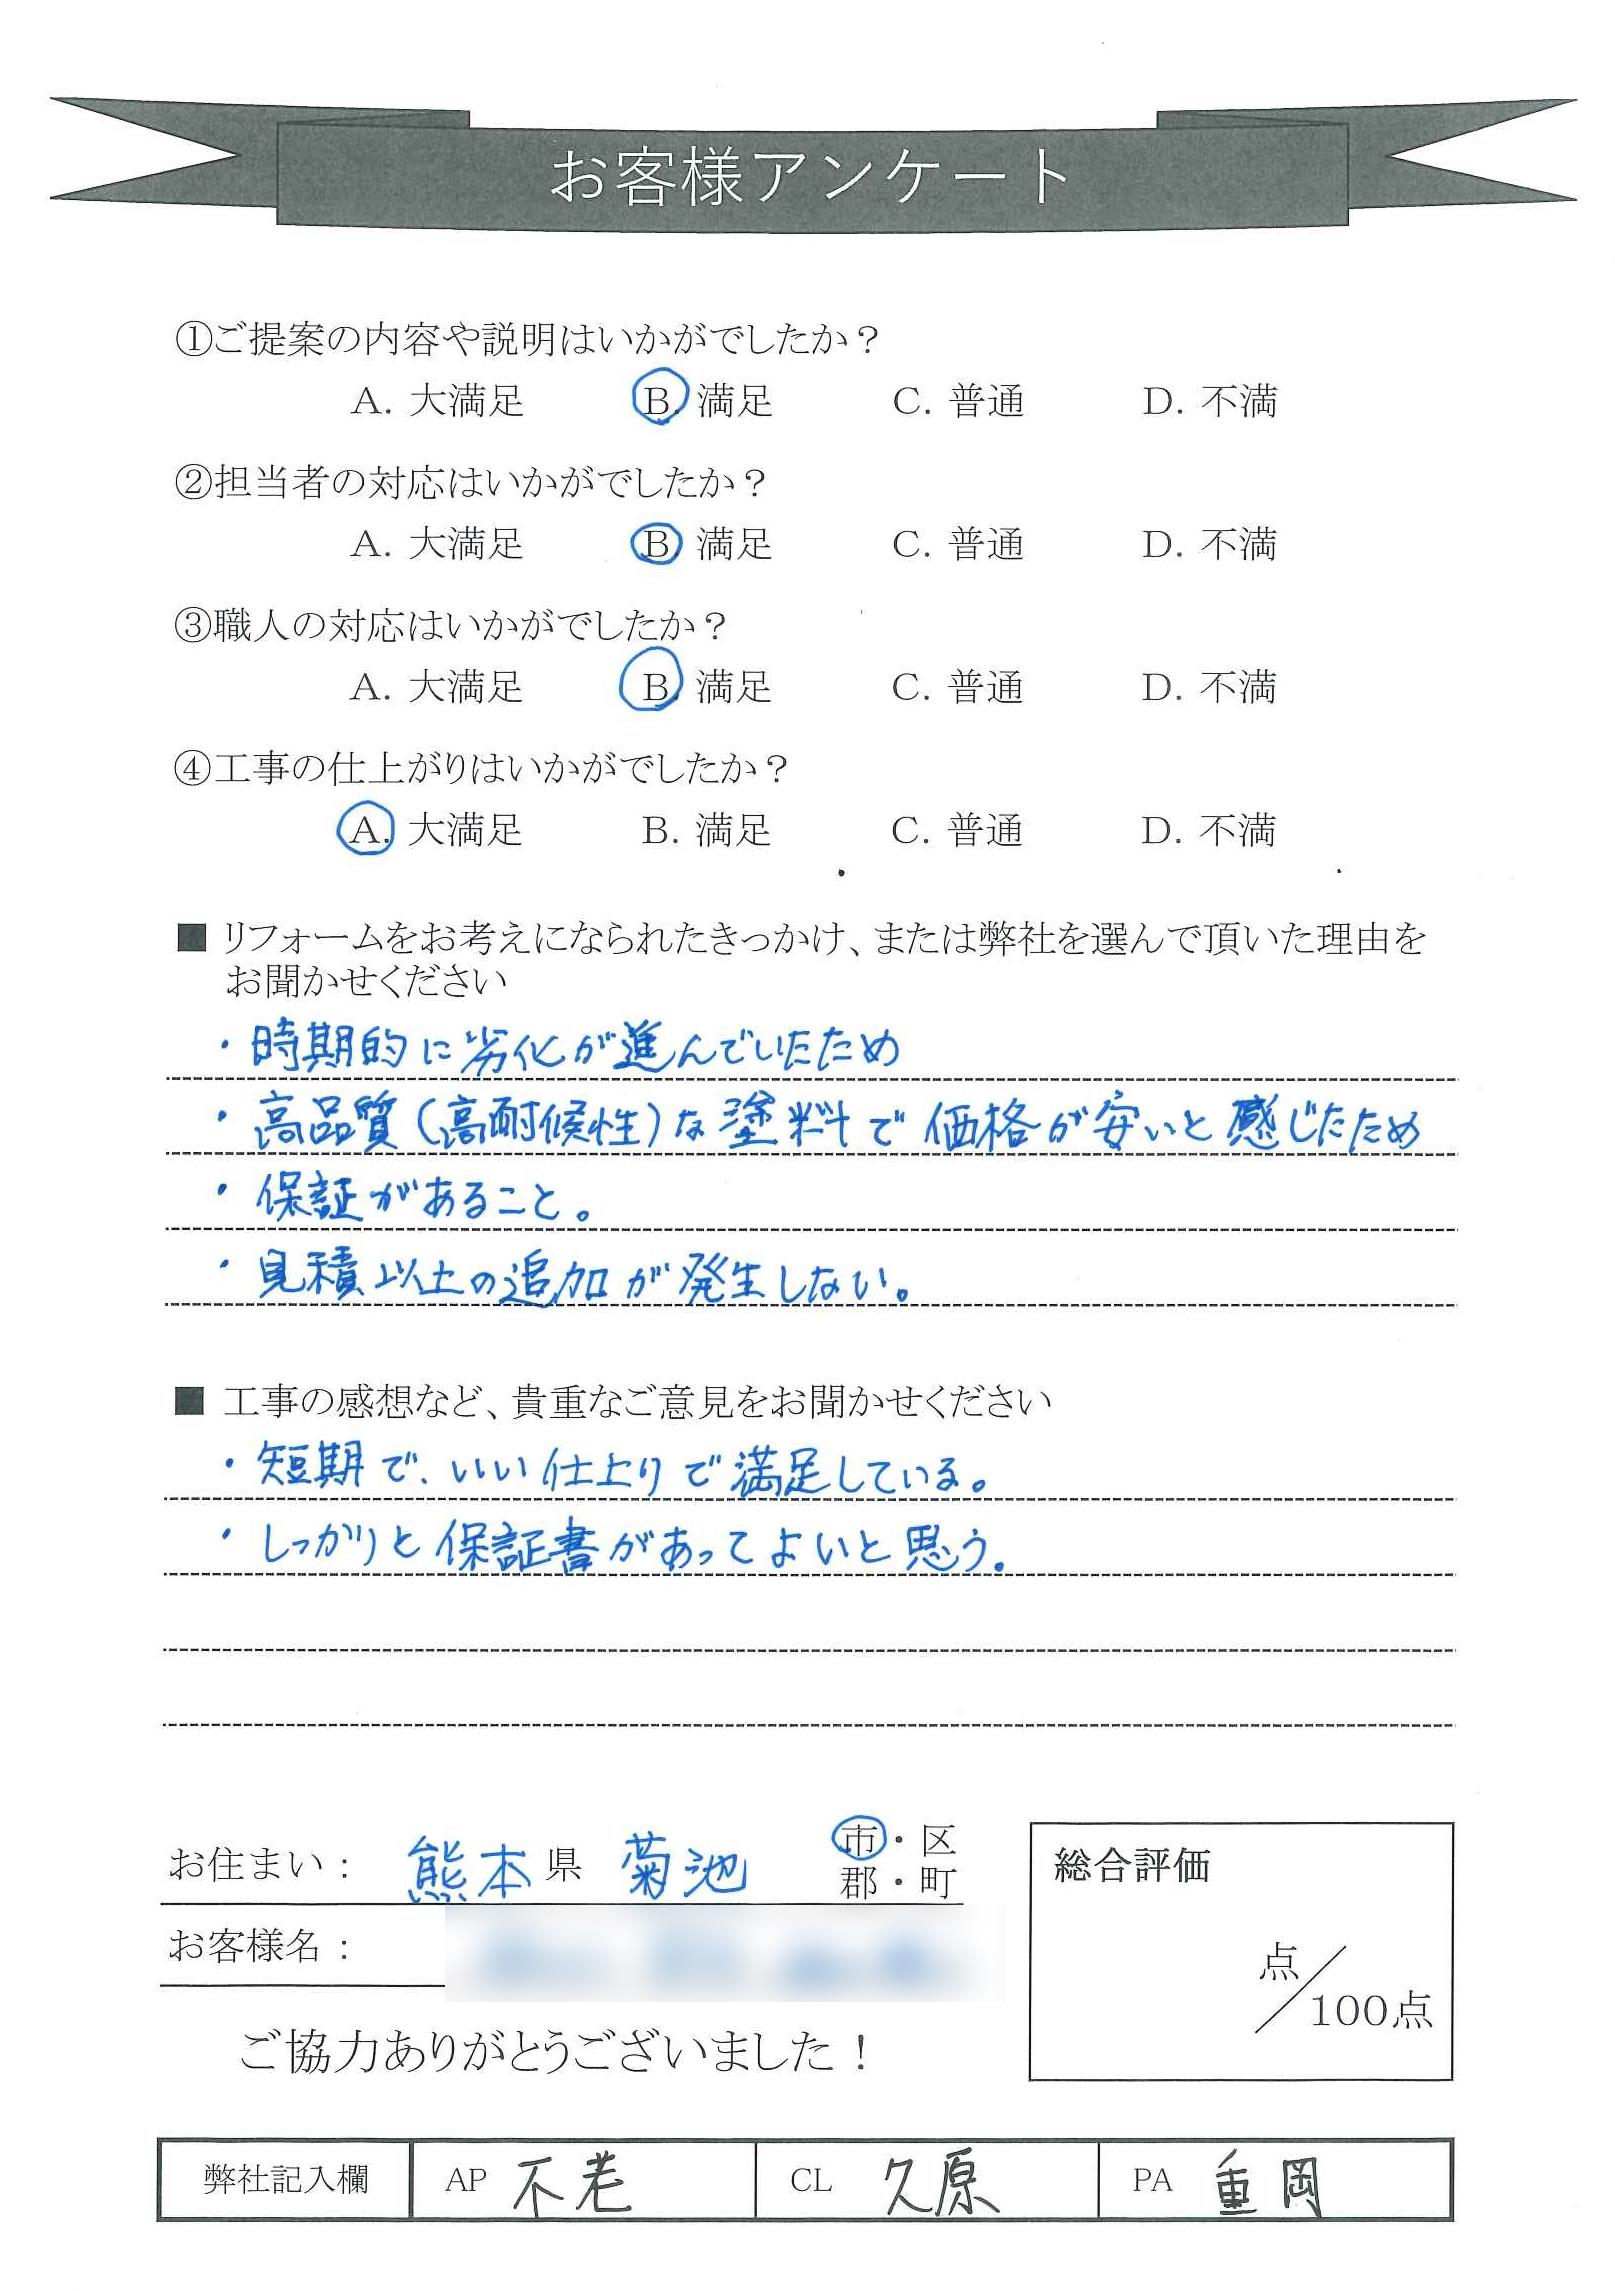 お客様アンケート
①ご提案の内容や説明はいかがでしたか？
A. 大満足 B. 満足 C. 普通 D. 不満
②担当者の対応はいかがでしたか？
A. 大満足 B. 満足 C. 普通 D. 不満
③職人の対応はいかがでしたか？
A. 大満足 B. 満足 C. 普通 D. 不満
④工事の仕上がりはいかがでしたか？
A. 大満足 B. 満足 C. 普通 D. 不満
■ リフォームをお考えになられたきっかけ、または弊社を選んで頂いた理由を
お聞かせください
・時期的に劣化が進んでいたため
・高品質(高耐候性)な塗料で価格が安いと感じたため
・保証があること。
・見積以上の追加が発生しない。
■ 工事の感想など、貴重なご意見をお聞かせください
・短期で、いい仕上りで満足している。
・しっかりと保証書があってよいと思う。
お住まい： 熊本県 菊池 市・区
郡・町
お客様名：
総合評価
点／100点
ご協力ありがとうございました！
弊社記入欄 AP 不老 CL 久原 PA 重岡